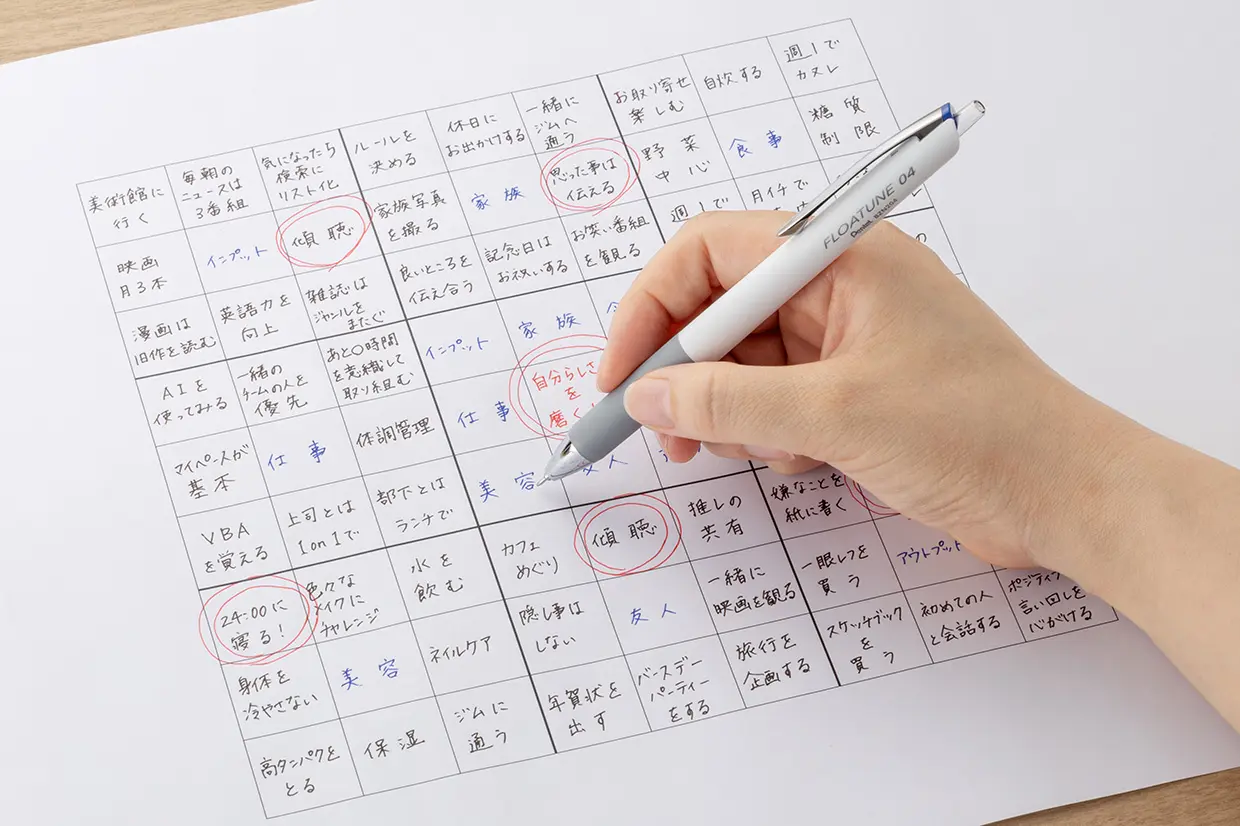 美術館に
行く
毎朝の
ニュースは
3番組
気になったら
検索に
リスト化
映画
月3本
インプット
傾聴
漫画は
旧作を読む
英語力を
向上
雑誌は
ジャンルを
またぐ
ルールを
決める
休日に
お出かけする
一緒に
ジムへ
通う
家族写真
を撮る
家族
思った事は
伝える
良いところを
伝え合う
記念日は
お祝いする
お笑い番組
を観る
お取り寄せ
楽しむ
自炊する
週1で
カヌレ
野菜
中心
食事
糖質
制限
週1で
月イチで
AIを
使ってみる
一緒の
チームの人を
優先
あと〇時間
を意識して
取り組む
マイペースが
基本
仕事
体調管理
VBA
を覚える
上司とは
1on1で
部下とは
ランチで
インプット
家族
仕事
自分らしさ
を
磨く
美容
友人
の
24:00に
寝る!
色々な
メイクに
チャレンジ
水を
飲む
身体を
冷やさない
美容
ネイルケア
高タンパクを
とる
保湿
ジムに
通う
カフェ
めぐり
傾聴
推しの
共有
隠し事は
しない
友人
一緒に
映画を観る
年賀状を
出す
バースデー
パーティー
をする
旅行を
企画する
嫌なことを
紙に書く
一眼レフを
買う
アウトプット
スケッチブック
を
買う
初めての人
と会話する
ポジティブ
言い回しを
心がける
FLOATUNE 04
Pentel